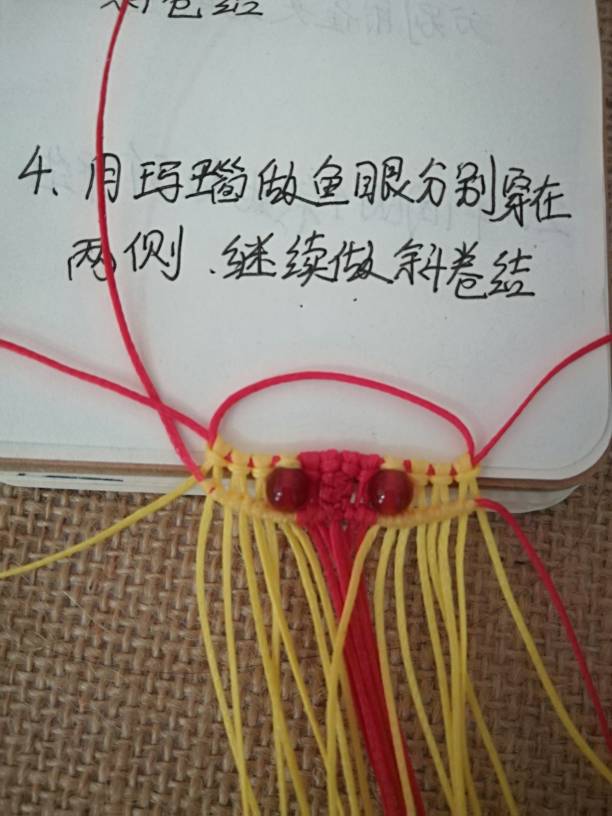 斜卷结
4、用玛瑙做鱼眼分别穿在
两侧.继续做斜卷结